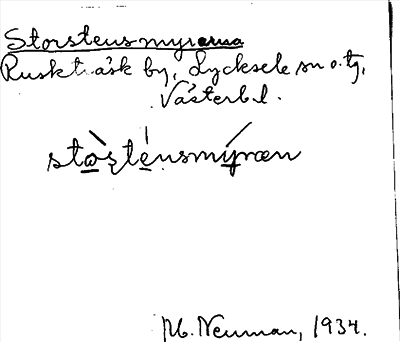 Storstensmyrarna
Ruskträsk by, Lycksele sn o. tg.
Västerb. l.
stòʂténsmýræn
M. Neuman, 1934.